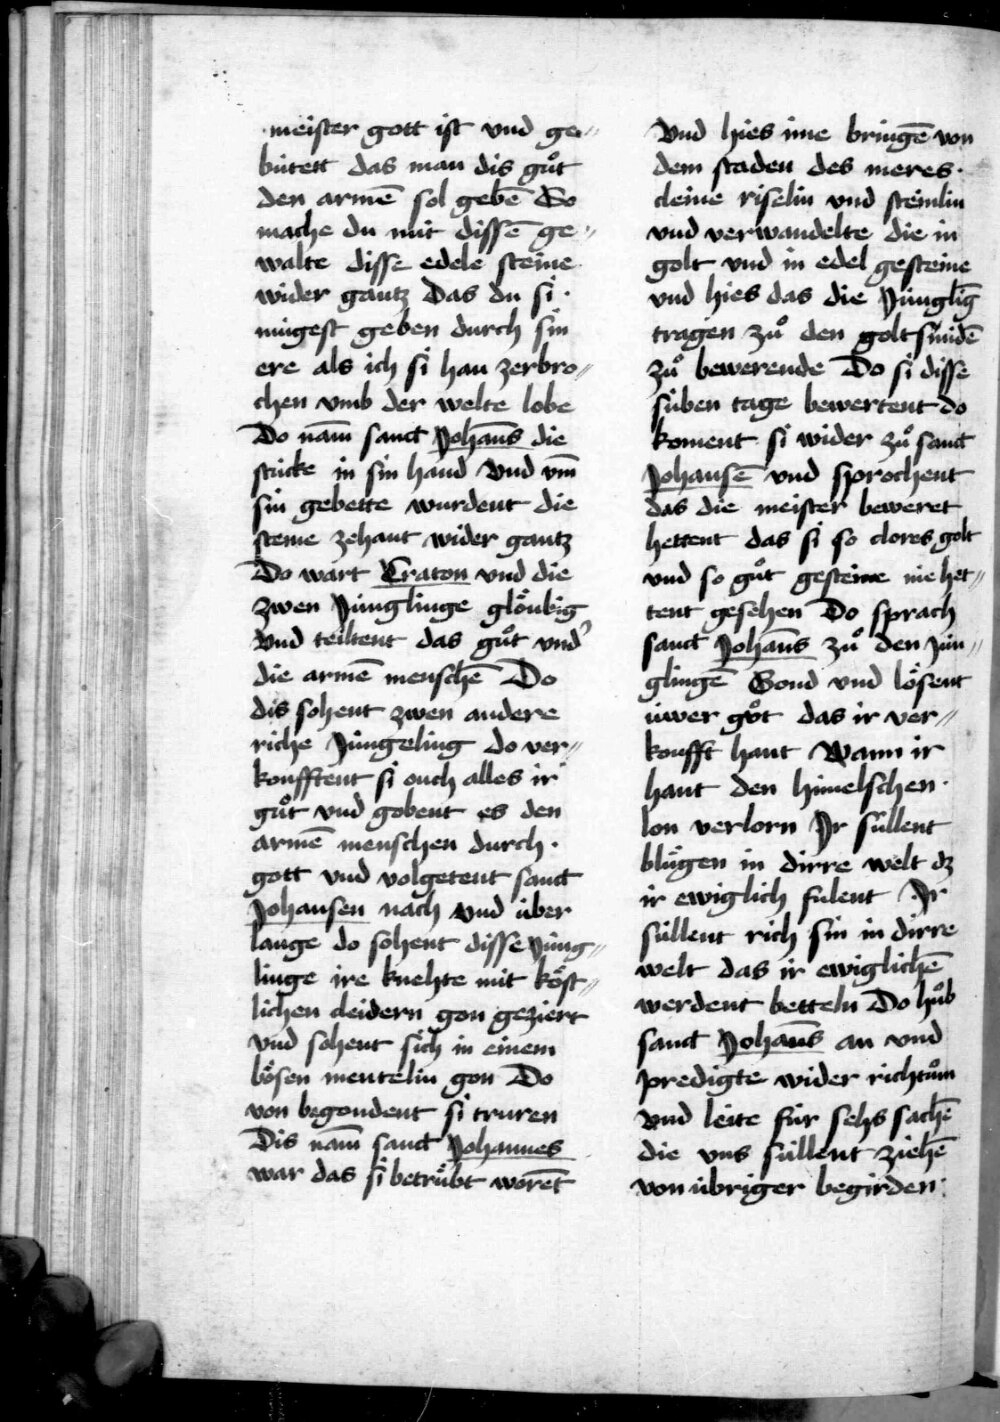 meister gott ist vnd ge„
bútett das man dis gůt
den armē sol gebē So
mache du mit dissē ge„
walte disse edele steine
wider gantz Das du si·
múgest geben durch sin
ere als ich si han zerbro„
chen vmb der welte lobe
Do nam̄ sanct Johans̄ die
stúcke in sin hand Vnd vm̄
sin gebette wurdent die
steine zehant wider gantz
Do wart Craton vnd die
zwen Júnglinge glo᷑ubig
Vnd teiltent das gůt vnd᾽
die armē menschē Do
dis sohent zwen andere
riche Júngeling do ver„
koufftent si ouch alles ir
gůt vnd gobent es den
armē menschen durch·
gott vnd volgetent sanct
Johansen nach vnd úber
lange do sohent disse Júng„
linge ire knehte mit kӧst„
lichen cleidern gon geziert
vnd sohent sich in einem
bӧsen mentelin gon Do
von begondent si truren
Dis nam̄ sanct Johannes
war das si betrůbt worēt
Vnd hies ime bringē von
dem staden des meres·
cleine riselin vnd steinlin
vnd verwandelte die in
golt vnd in edel gesteine
vnd hies das die Júnglīg
tragen zů den goltsmidē
zů bewerende Do si disse
súben tage bewertent do
koment si wider zů sanct
Johansē vnd sprochent
das die meister beweret
hettent das si so clores golt
vnd so gůt gesteine nie het„
tent gesehen Do sprach
sanct Johans̄ zů den jún„
glingē Gond vnd lӧsent
úwer gůt das ir ver„
koufft hant Wann ir
hant den himelschen·
lon verlorn Ir súllent
blůgen in dirre welt dz
ir ewiglich fulent Ir
súllent rich sin in dirre
welt das ir ewiglichē
werdent betteln Do hůb
sanct Johans̄ an vnd
predigte wider richtům
Vnd leite fúr sehs sachē
die vns súllent ziehē
von úbriger begirden·